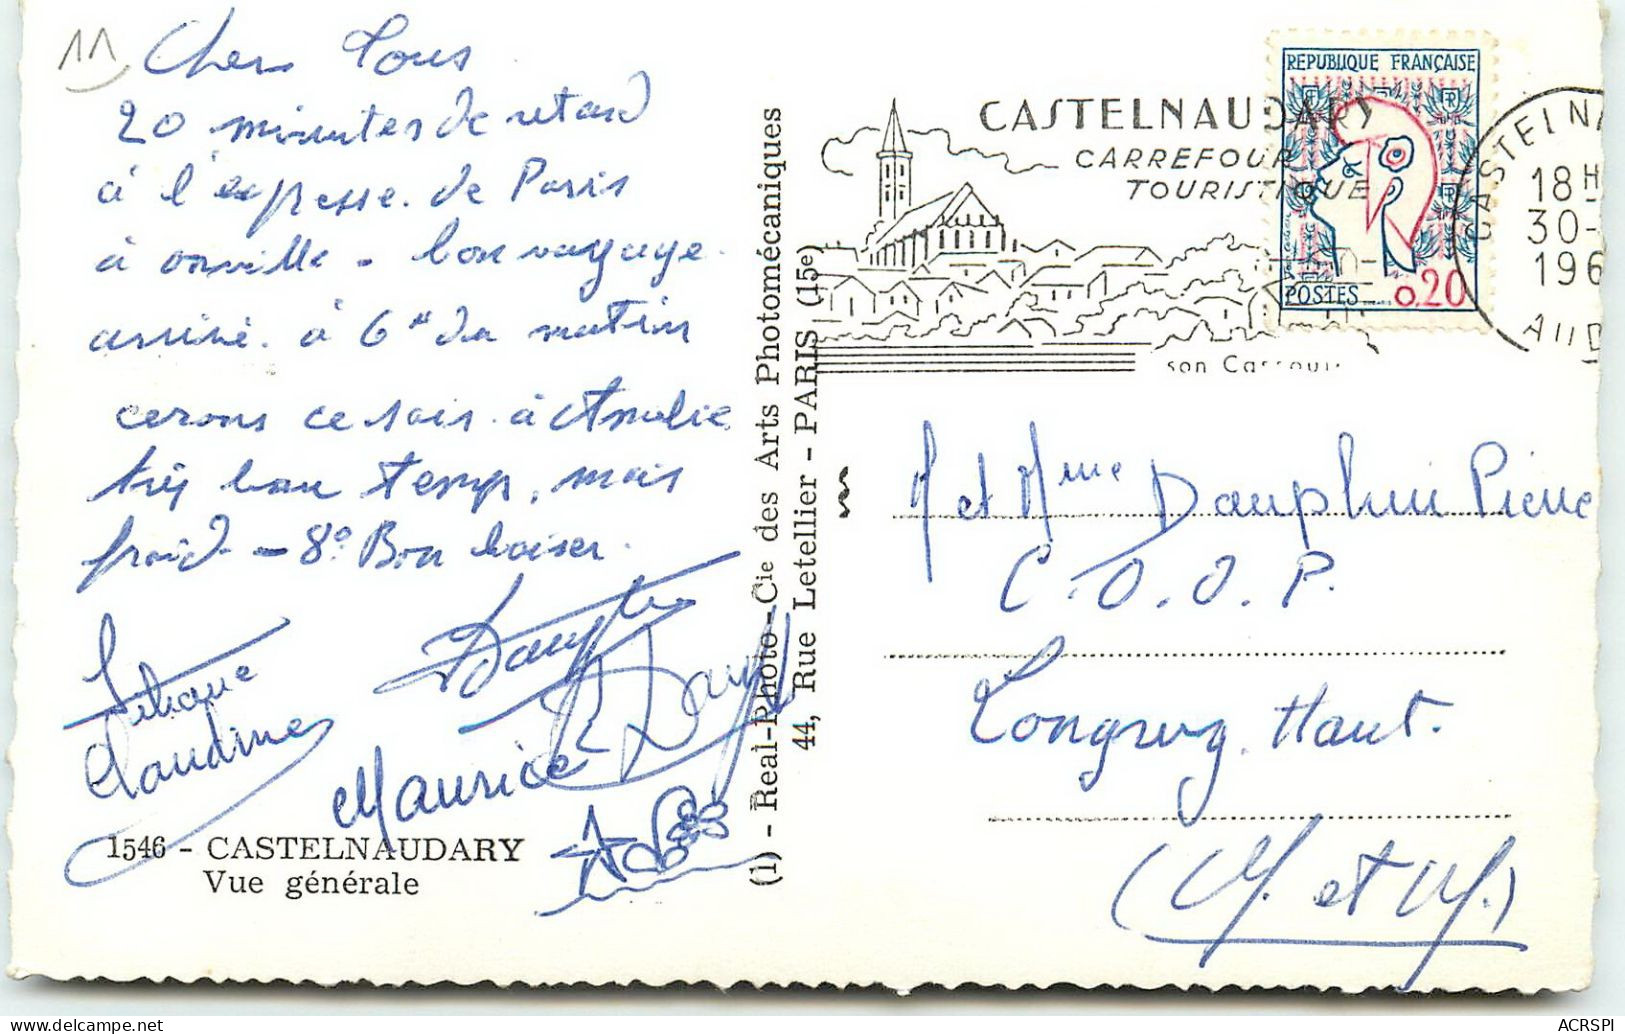 11
Chers Tous
20 minutes de retard
à l'expresse. de Paris
à bon voyage.
arrivé. à 6 H du matin
cerons ce soir. à Amélie
très bau temp, mais
froid - 8° Bon baiser.
Liliane
Claudine
Dauphin
Maurice
1546 - CASTELNAUDARY
Vue générale
(1) - Real-Photo-Cie des Arts Photomécaniques
44, Rue Letellier - PARIS (15e)
CASTELNAUDARY
CARREFOUR
TOURISTIQUE
son Cassoulet
REPUBLIQUE FRANÇAISE
POSTES 0,20
CASTELNA
18H
30-
196
AUD
M et Mme Dauphin Pierre
C.O.O.P.
Longwy. Haut.
(M. et M.)
ACRSPI